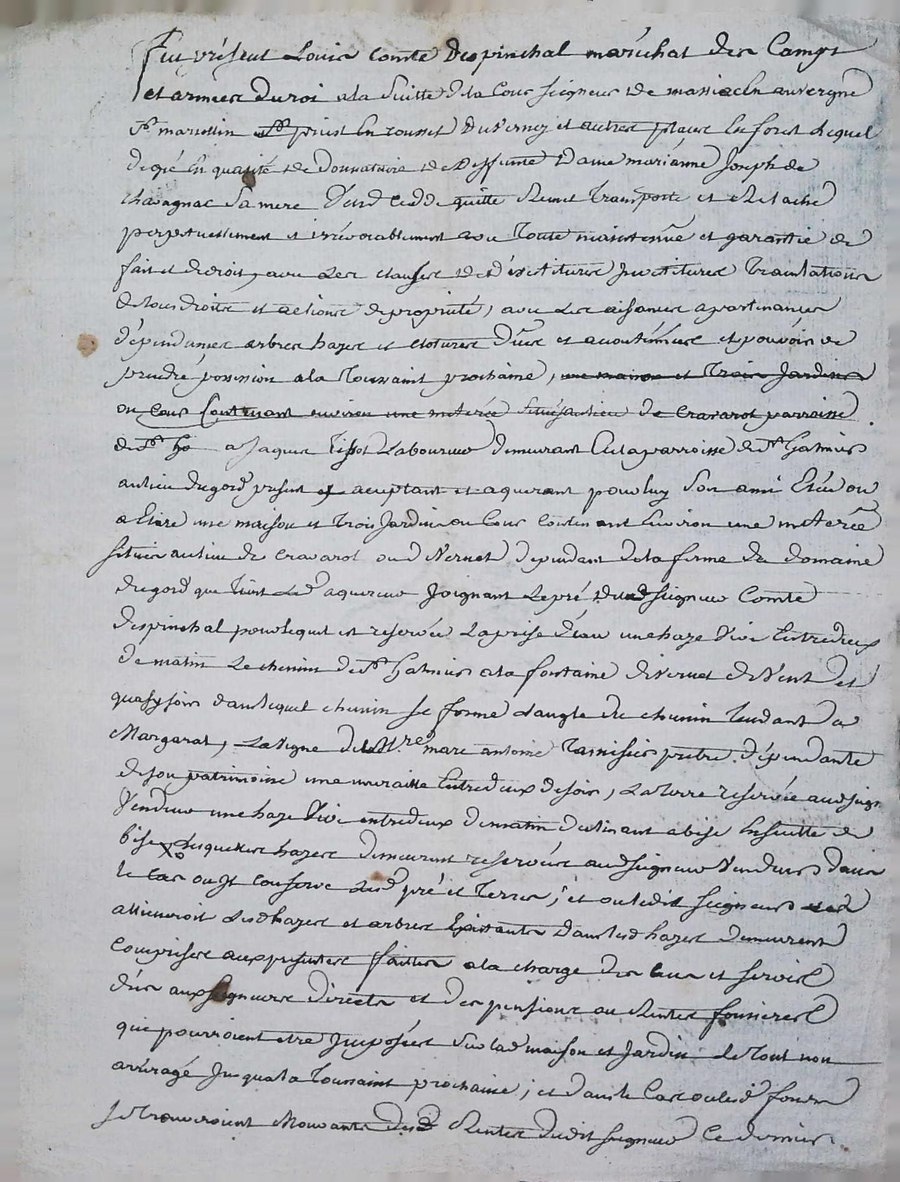 Fut présent Louis comte Despinchal maréchal des Camps
et armées du roi a la suitte de la Cour seigneur de massiac en auvergne
St marcellin St priest En rousset du vernez et autres places En forest Lequel
de gré En qualité de Donnataire de Deffunte Dame marianne Joseph de
chavagnac sa mere Vend Cedde quitte Remet Transporte et Relache
perpetuellement et irrévocablement avec Toute maintenue et garantie de
fait et de droit, avec Les clauses de dévestitures Jnvestitures Translations
de tous droits et actions de proprieté, avec Les aisances apartenances
dépendances arbres hayes et clotures dues et acoutumées et pouvoir de
prendre possession a la Toussaint prochaine, une maison et Trois Jardins
ou Cour Contenant environ une meterée situés au lieu de Cravarot parroisse
de St a Jaques Tissot Laboureur demeurant En la parroisse de St Galmier
au lieu du gord present et aceptant et aquerant pour luy son ami Eleu ou
a Elire une maison et Trois Jardins ou Cour Contenant Environ une meterée
situés au lieu de Cravarot ou d Vernet dépendant de la ferme du domaine
du gord que Tient Led aquereur Joignant Le pré dud seigneur Comte
Despinchal pour lequel est reservée La prise d'eau une haye vive Entredeux
de matin Le chemin de St Galmier a la fontaine du Vernet de Vent et
quasy soir dans lequel chemin se forme L'angle du chemin Tendant a
Margarat, La vigne de Mre marc antoine Tamisier pretre dépendante
de son patrimoine une muraille Entredeux de soir, La Terre reservée aud seigr
Vendeur une haye Vive entredeux de matin declinant a bise Ensuitte de
bise Lesquelles hayes demeurent reservées aud seigneur Vendeur dans
le Cas ou Jl conserve Lesd pré et Terres; et ou ledit seigneur
alieneroit Lesd hayes et arbres Existants dans lesd hayes demeurent
Comprises aux presentes faittes a la charge des Cens et servis
dûs aux seigneurs Directs et des pensions ou Rentes foncieres
qui pourroient etre Jmposées sur lad maison et Jardin le Tout non
arréragé Jusqua la Toussaint prochaine; et dans le Cas ou lesd fonds
se trouveroient Mouvants des d Rentes dudit seigneur Ce dernier